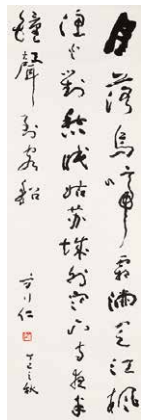 月落烏啼霜滿天江楓
漁火對愁眠姑蘇城外寒山寺夜半
鐘聲到客船
丁巳之秋